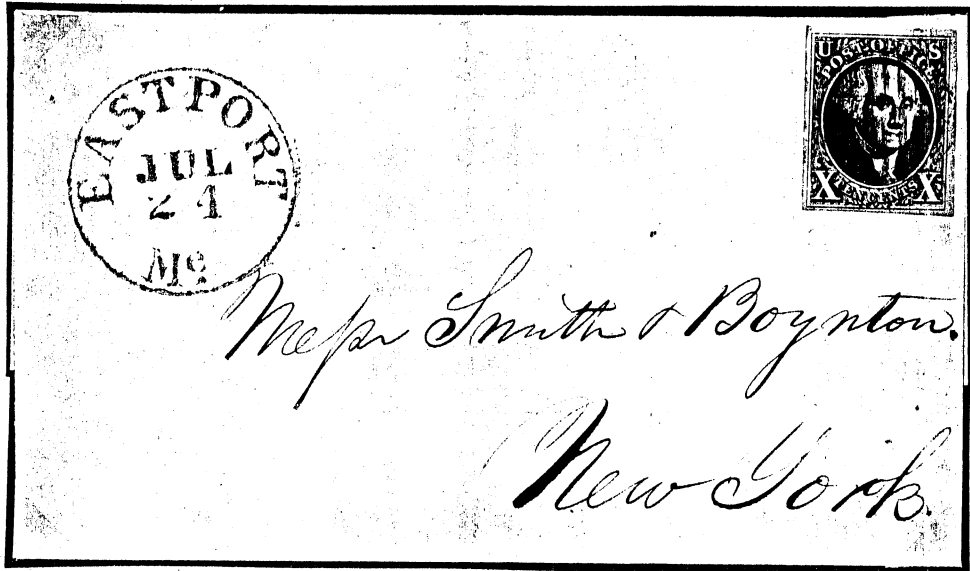 EASTPORT
JUL
24
Me
U S
POST OFFICE
X TEN CENTS X
Messr Smith & Boynton.
New York.